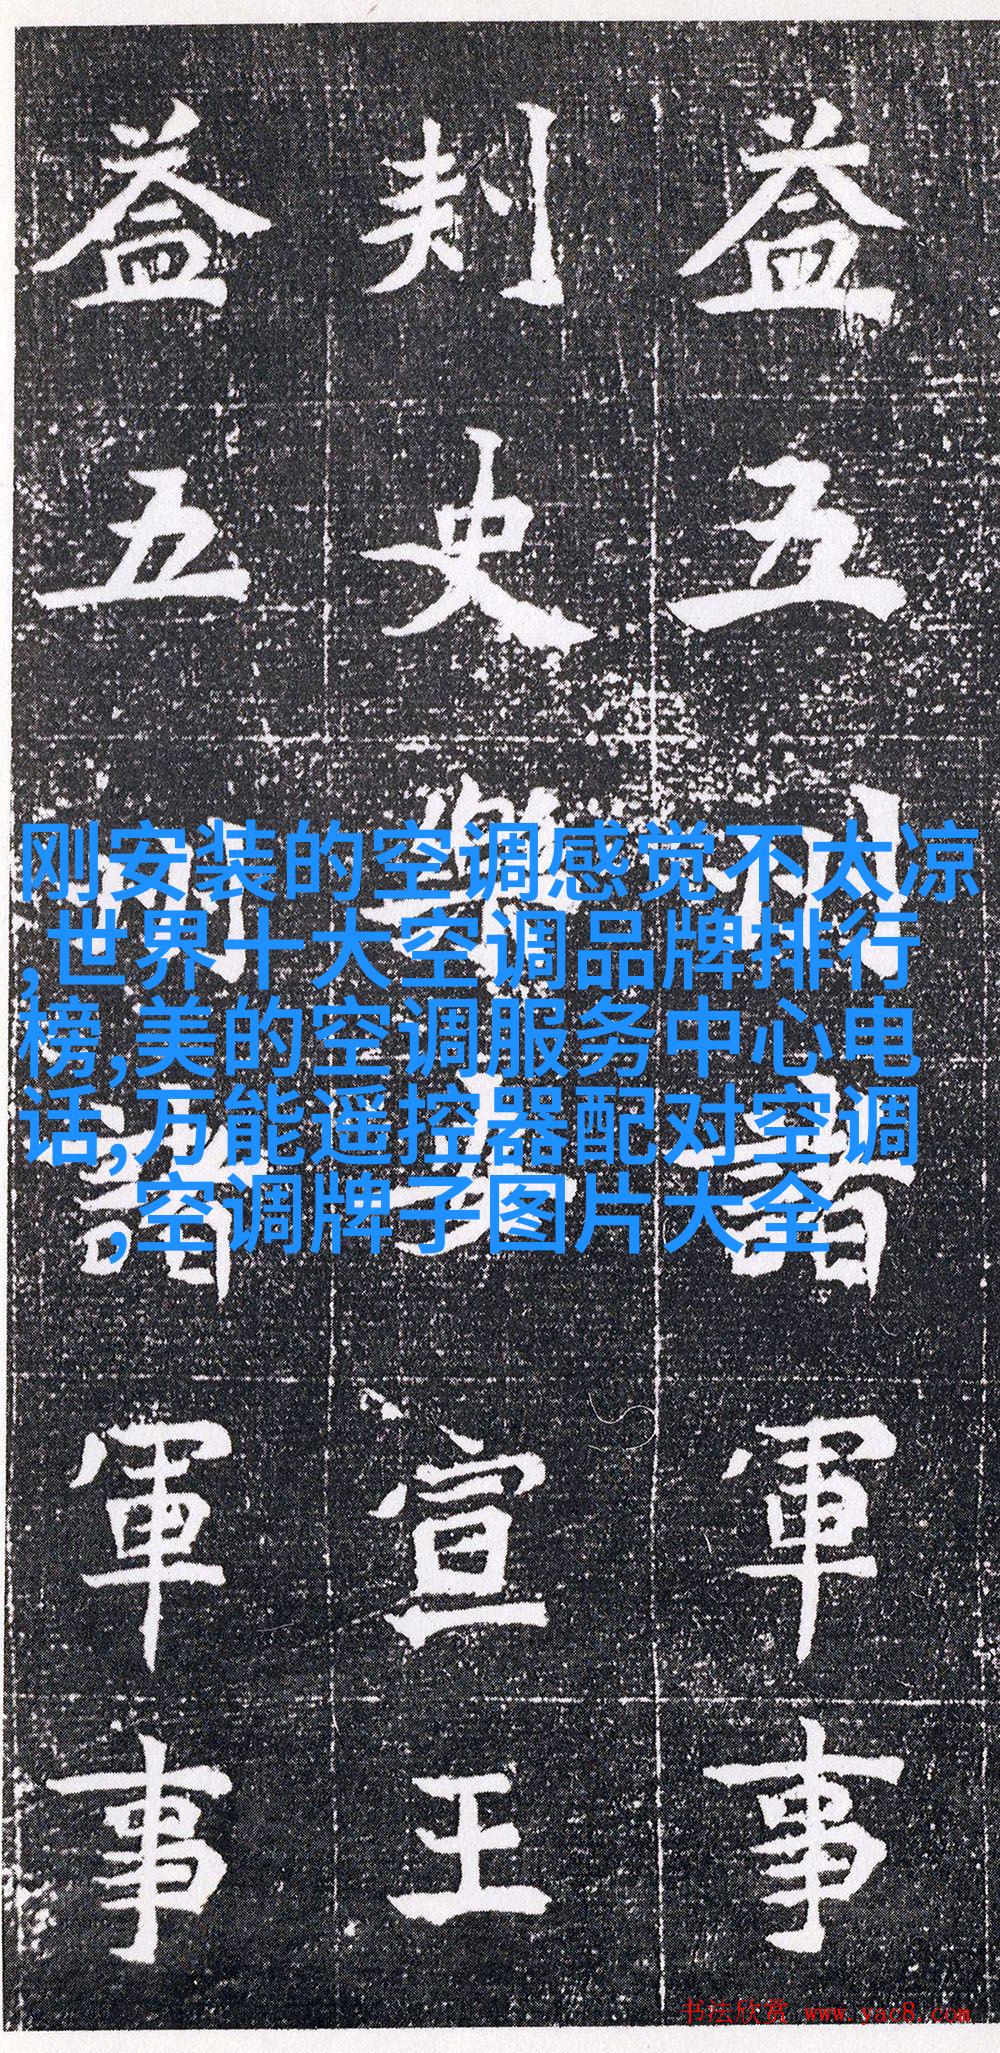 益五州諸軍事
刾史樂安宣王
益五諸軍事
刚安装的空调感觉不太凉
,世界十大空调品牌排行
榜,美的空调服务中心电
话,万能遥控器配对空调
,空调牌子图片大全
书法欣赏 www.yac8.com